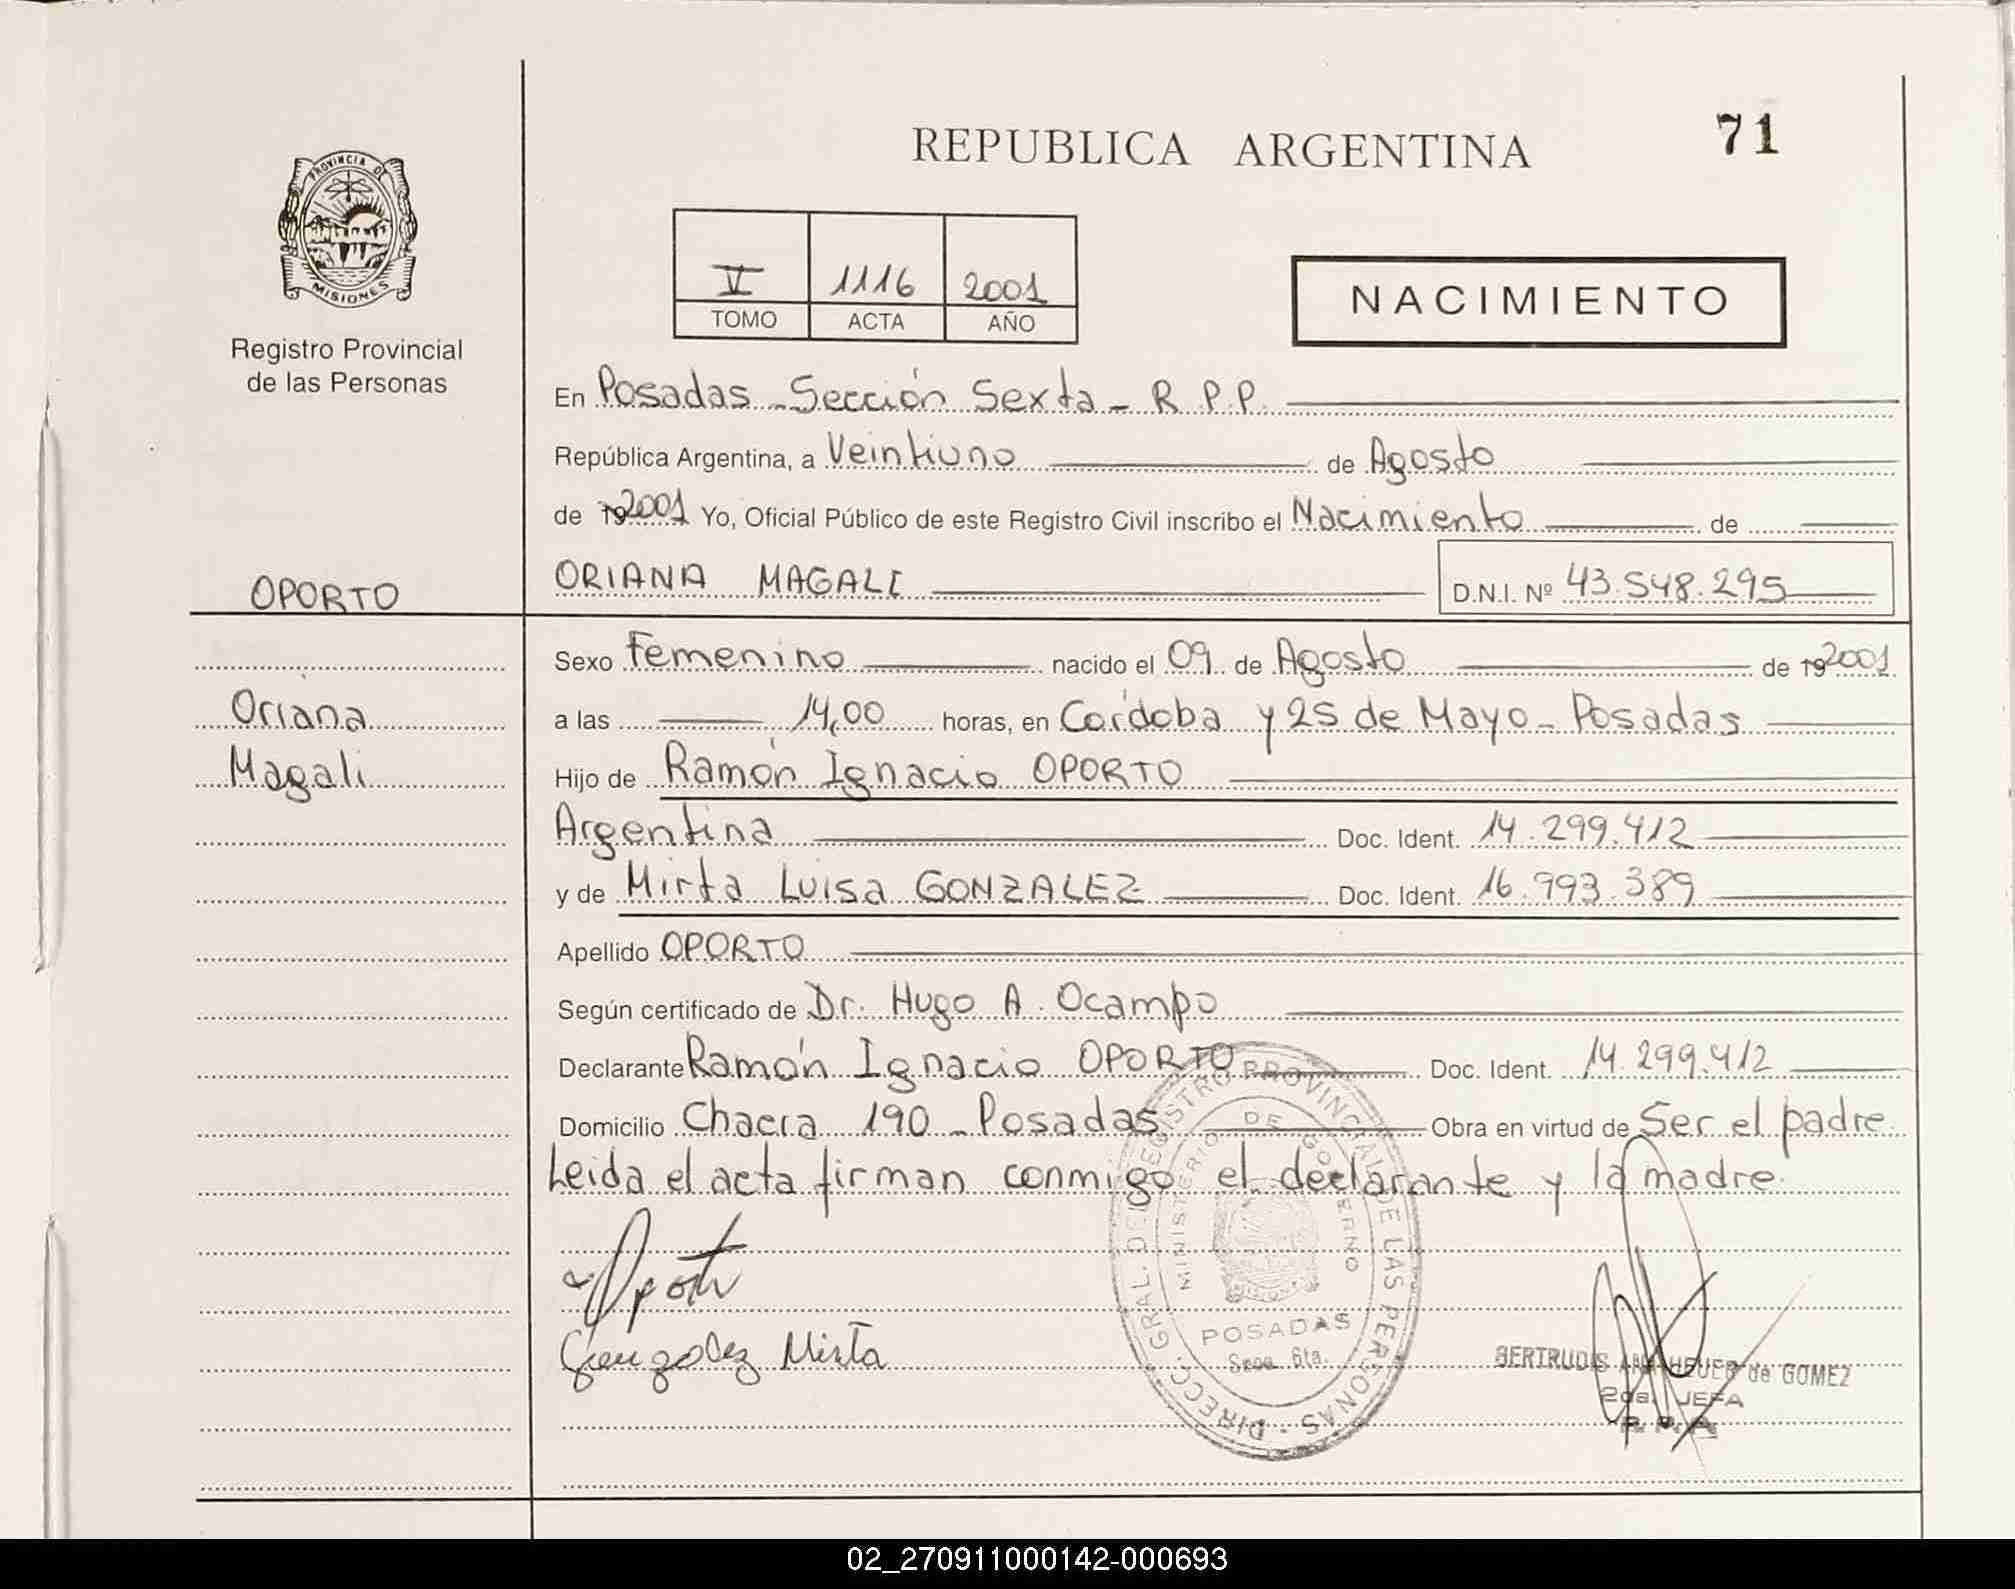 REPUBLICA ARGENTINA
71
PROVINCIA DE
MISIONES
Registro Provincial
de las Personas
V 1116 2001
TOMO ACTA AÑO
NACIMIENTO
En Posadas - Sección Sexta - R.P.P.
República Argentina, a Veintiuno de Agosto
de 192001 Yo, Oficial Público de este Registro Civil inscribo el Nacimiento de
OPORTO
ORIANA MAGALI D.N.I. Nº 43.548.295
Sexo Femenino nacido el 09 de Agosto de 192001
Oriana
a las 14,00 horas, en Córdoba y 25 de Mayo - Posadas
Magali
Hijo de Ramón Ignacio OPORTO
Argentina Doc. Ident. 14.299.412
y de Mirta Luisa GONZALEZ Doc. Ident. 16.993.389
Apellido OPORTO
Según certificado de Dr. Hugo A. Ocampo
Declarante Ramón Ignacio OPORTO Doc. Ident. 14.299.412
Domicilio Chacra 190 - Posadas Obra en virtud de Ser el padre
Leida el acta firman conmigo el declarante y la madre
Oporto
Gonzalez Mirta
DIRECC. GRAL. DEL REGISTRO PROVINCIAL DE LAS PERSONAS
MINISTERIO DE GOBIERNO
POSADAS
Secc. 6ta.
GERTRUDIS de GOMEZ
2da. JEFA
02_270911000142-000693